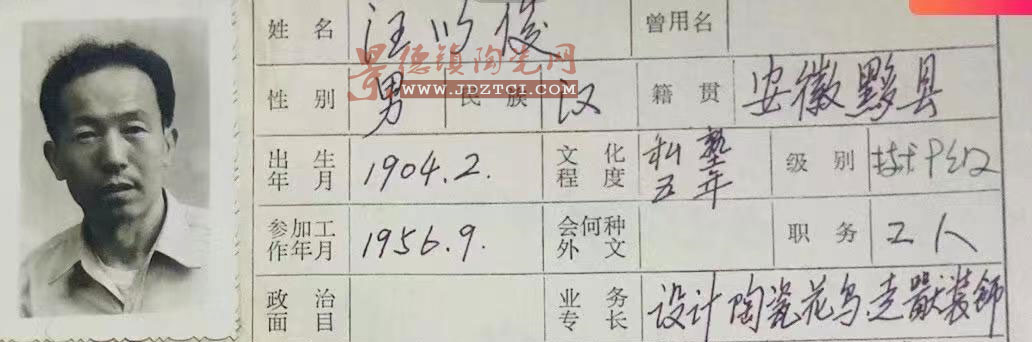 姓名 汪以俊 曾用名
景德镇陶瓷网
WWW.JDZTCI.COM
性别 男 民族 汉 籍贯 安徽黟县
出生年月 1904.2. 文化程度 私塾五年 级别 技术8级
参加工作年月 1956.9. 会何种外文 职务 工人
政治面目 业务专长 设计陶瓷花鸟.走獸装飾